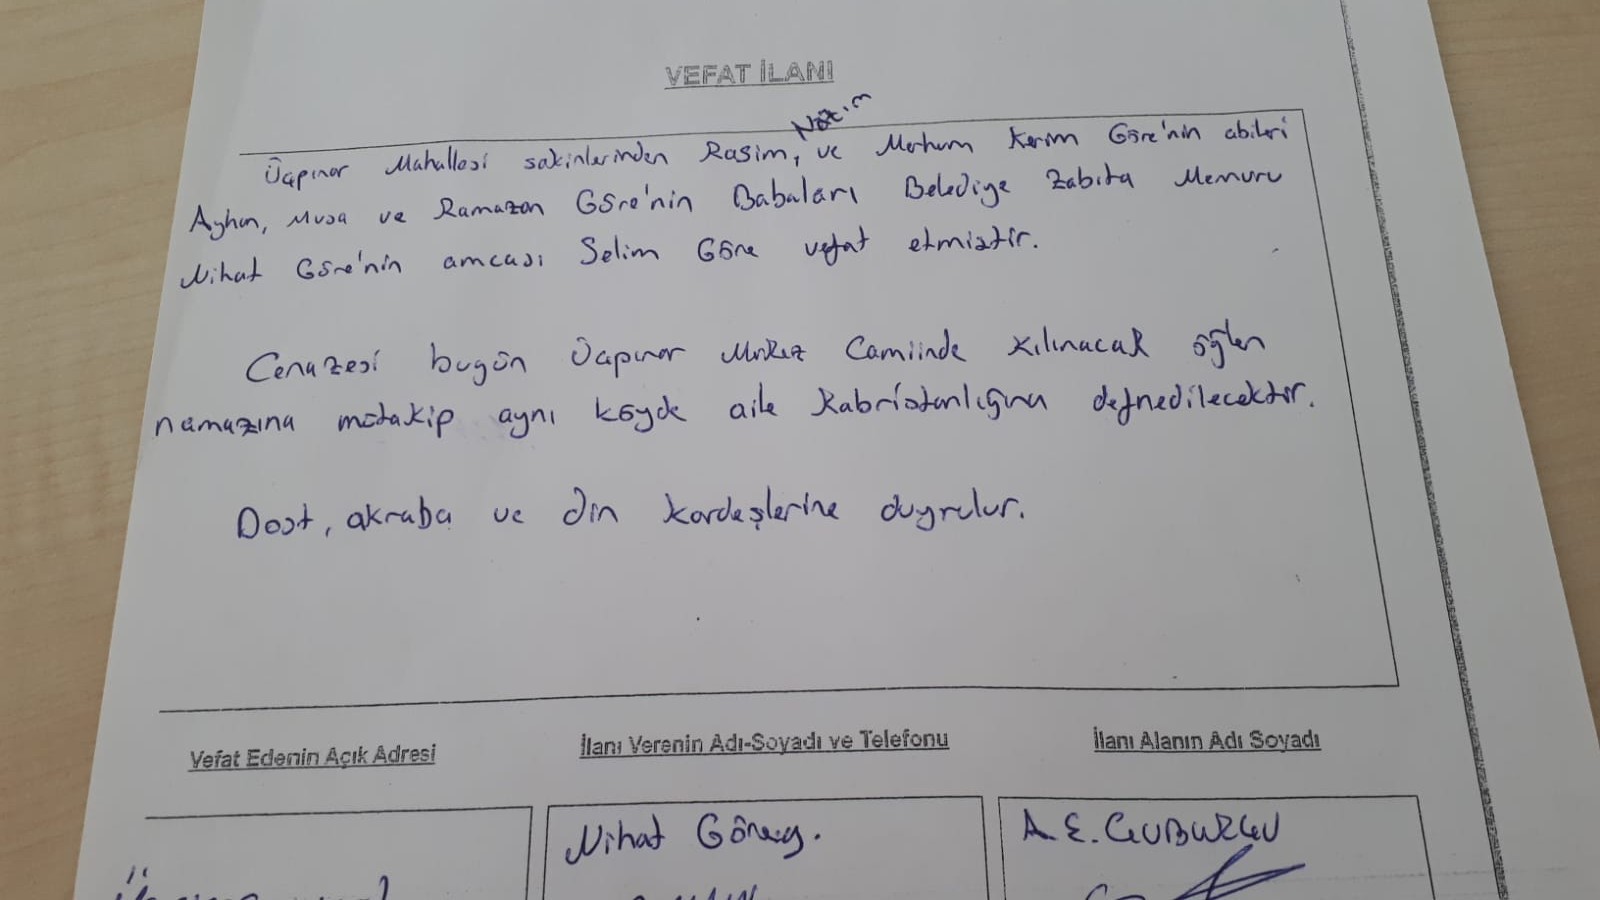 VEFAT İLANI
Nazım
Üçpınar Mahallesi sakinlerinden Rasim, ve Merhum Kerim Göre'nin abileri
Ayhan, Musa ve Ramazan Göre'nin Babaları Belediye Zabıta Memuru
Nihat Göre'nin amcası Selim Göre vefat etmiştir.
Cenazesi bugün Üçpınar Merkez Camiinde kılınacak öğlen
namazına mütakip aynı köyde aile kabristanlığına defnedilecektir.
Dost, akraba ve din kardeşlerine duyrulur.
Vefat Edenin Açık Adresi
İlanı Verenin Adı-Soyadı ve Telefonu
İlanı Alanın Adı Soyadı
Nihat
A.E.